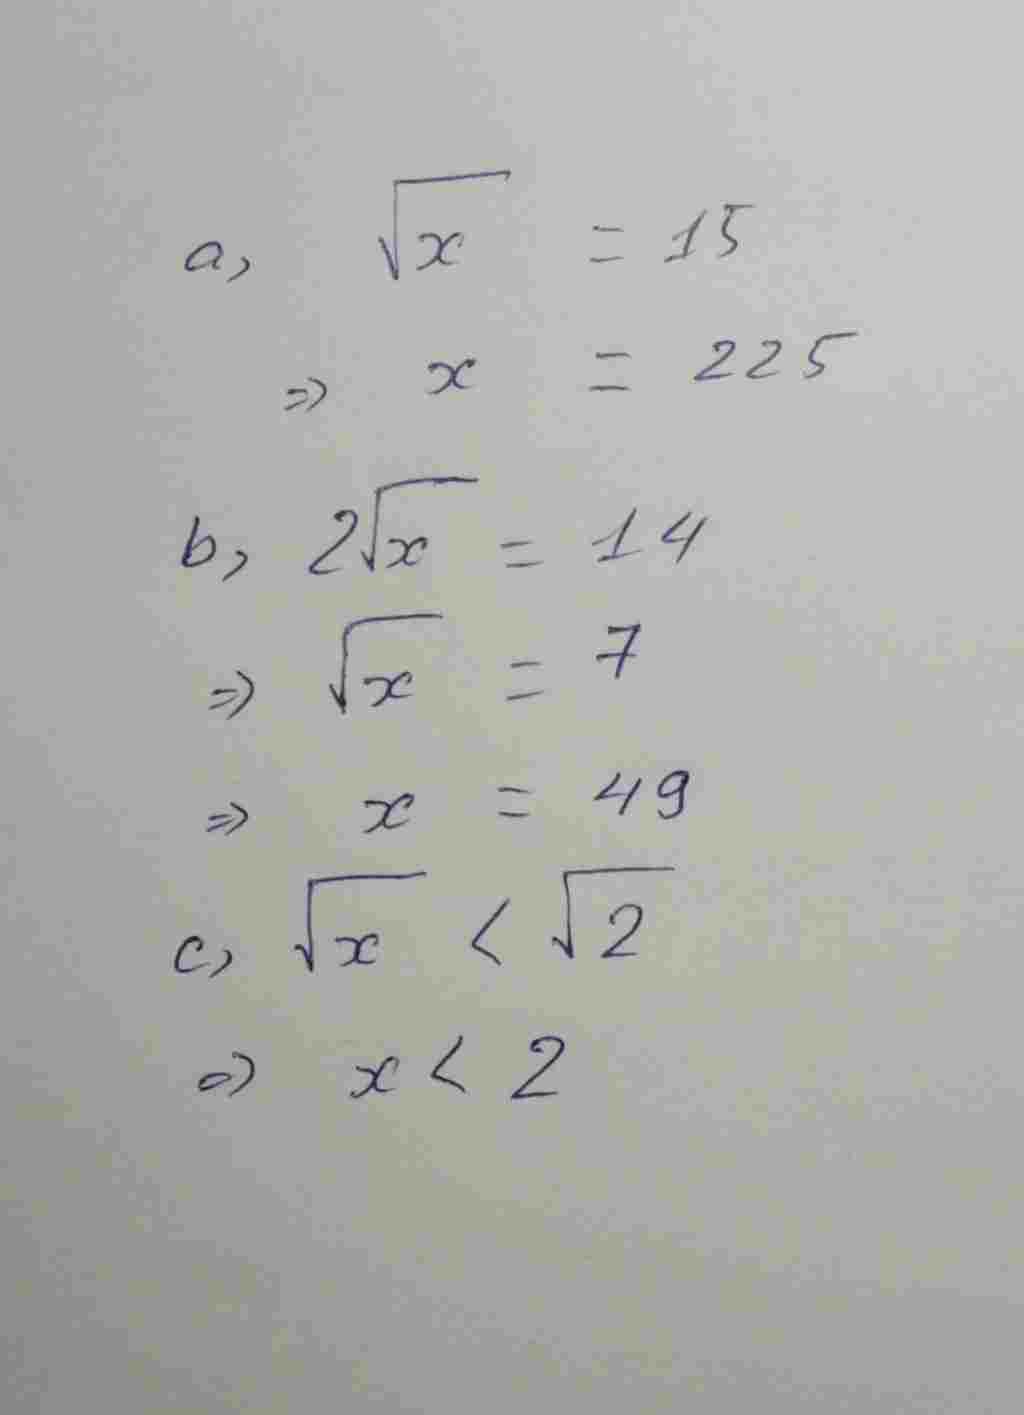 a, √x = 15
⇒ x = 225
b, 2√x = 14
⇒ √x = 7
⇒ x = 49
c, √x < √2
⇒ x < 2